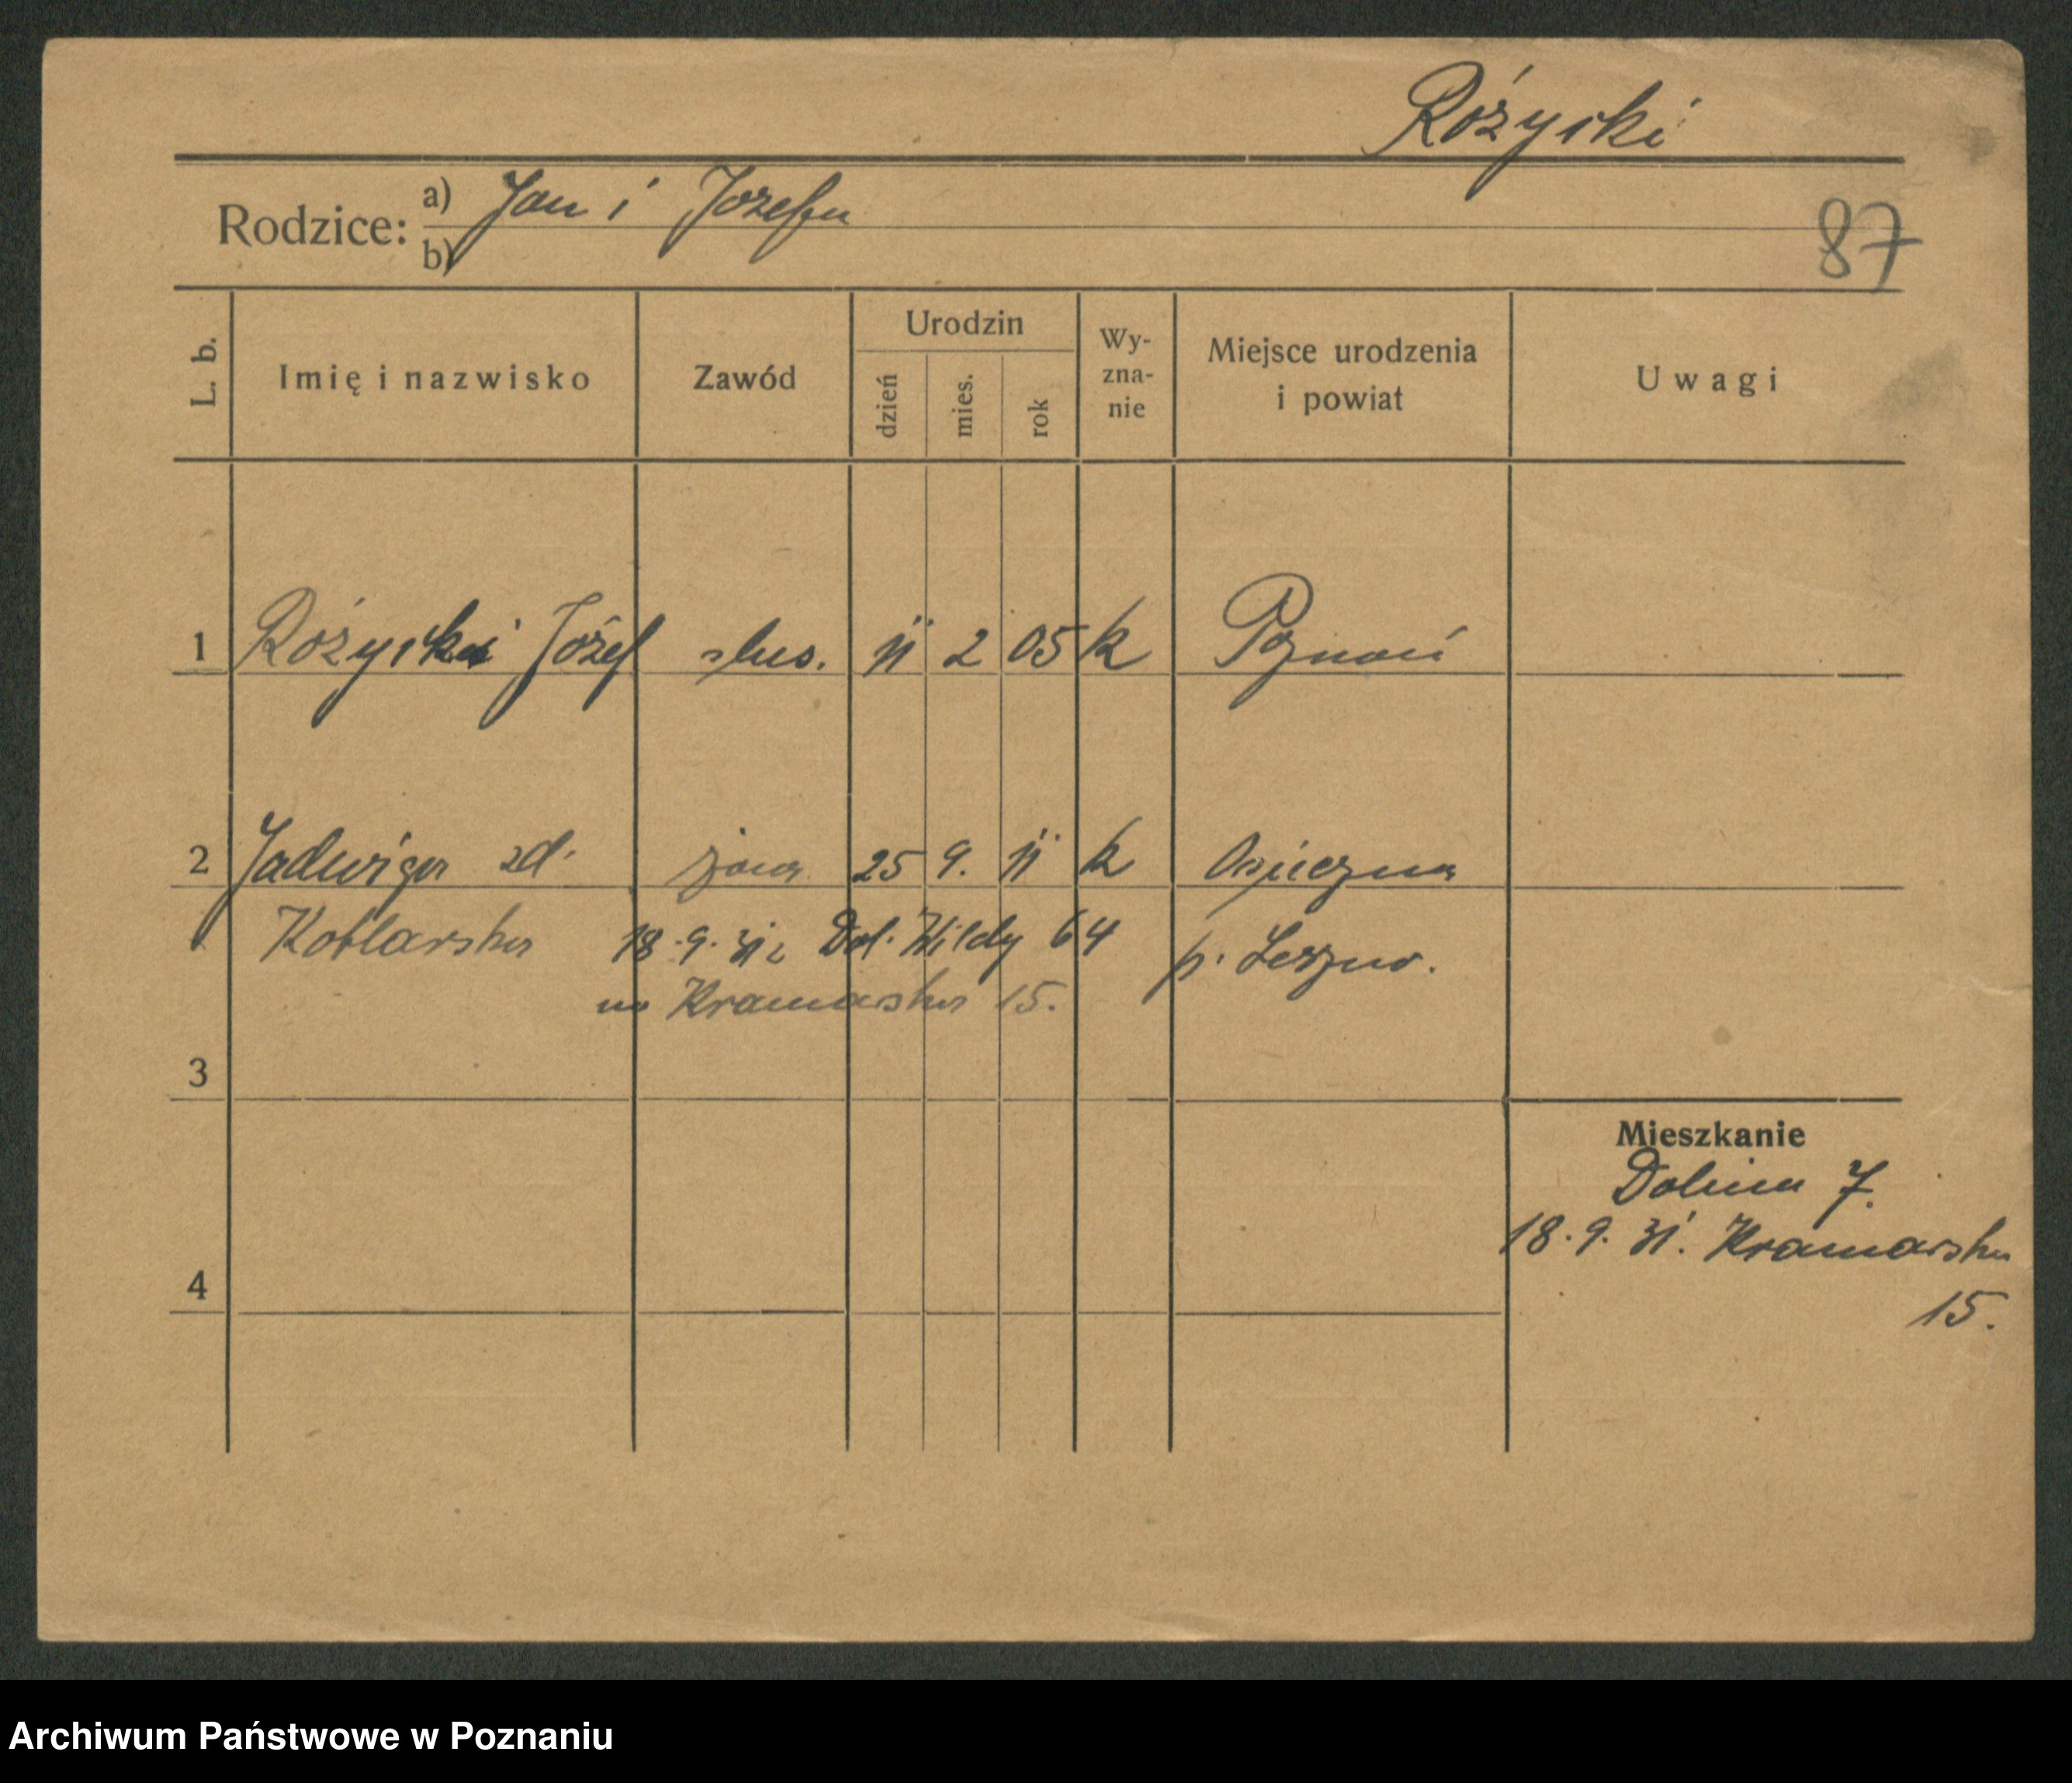 Różycki
Rodzice: a) Jan i Józefa
b)
87
L. b. Imię i nazwisko Zawód Urodzin dzień mies. rok Wy-zna-nie Miejsce urodzenia i powiat Uwagi
1 Różycki Józef ślus. 11 2 05 k Poznań
2 Jadwiga zd. żona 25 9. 11 k Osieczna
Kotlarska 18.9.31 z Dol. Wildy 64 p. Leszno.
na Kramarska 15.
3
Mieszkanie
Dolina 7.
18.9.31. Kramarska
4
15.
Archiwum Państwowe w Poznaniu